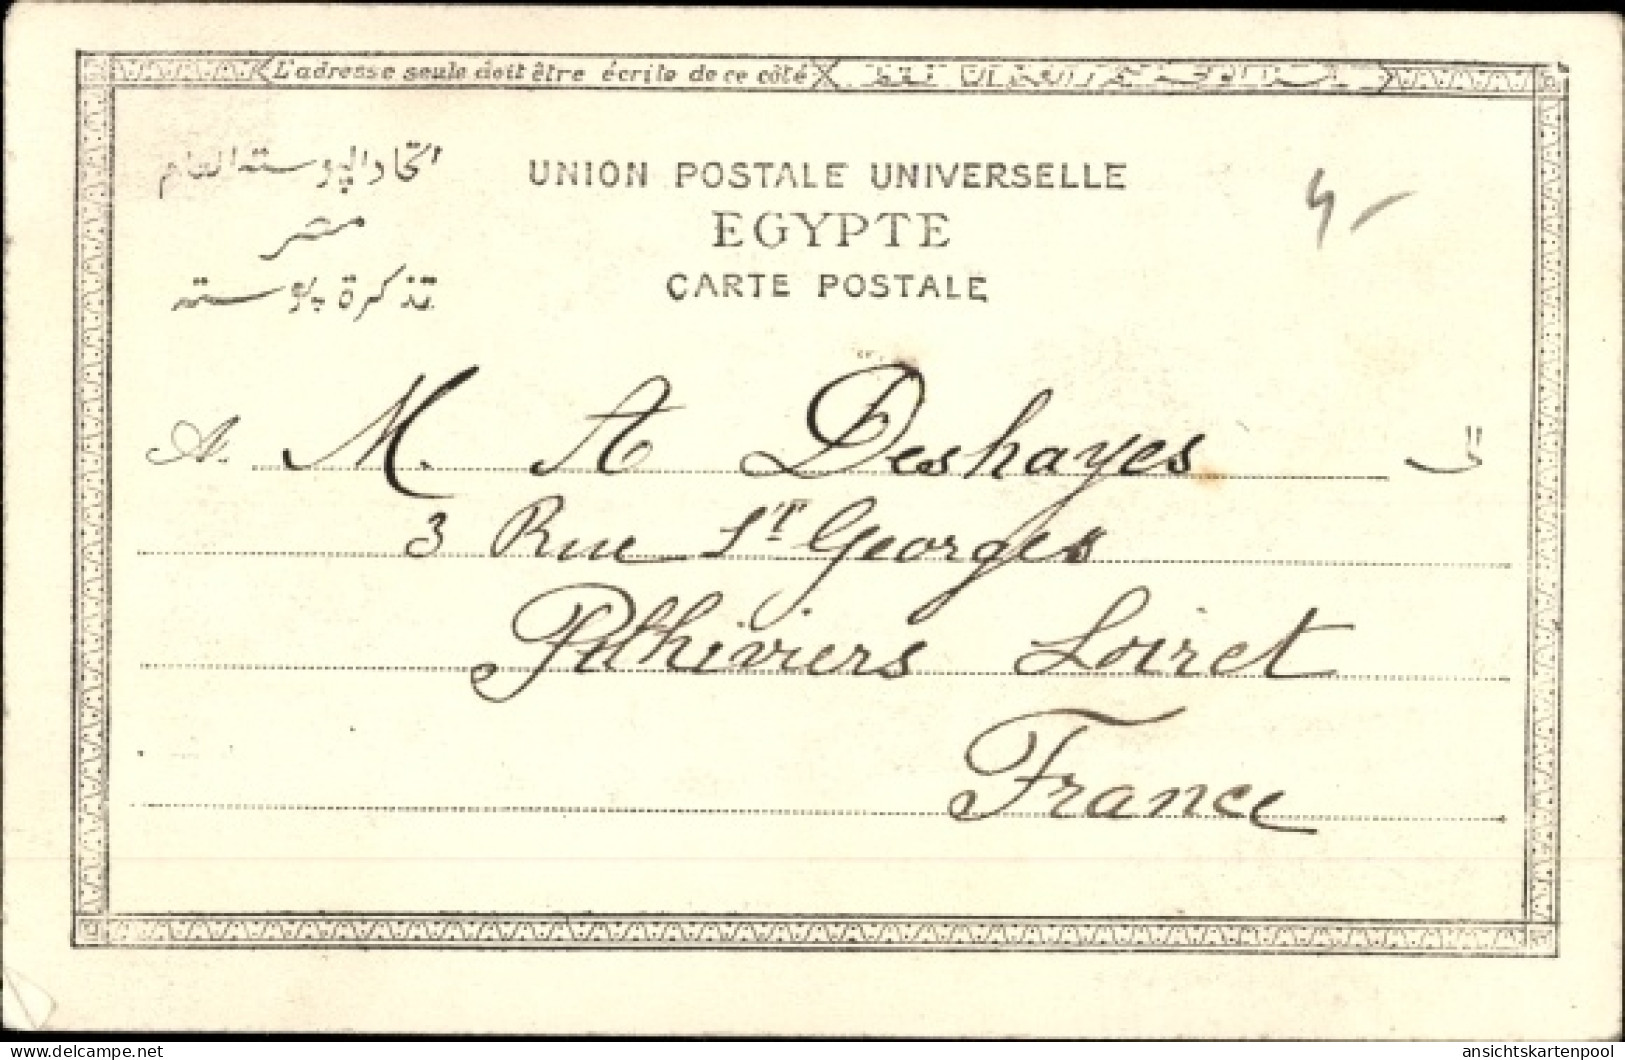 L'adresse seule doit être écrite de ce côté
اتحاد البوسته العام
مصر
تذكرة بوسته
UNION POSTALE UNIVERSELLE
EGYPTE
CARTE POSTALE
4-
A. M. A Deshayes الى
3 Rue St Georges
Pithiviers Loiret
France
Powered by TCPDF (www.tcpdf.org)
ansichtskartenpool